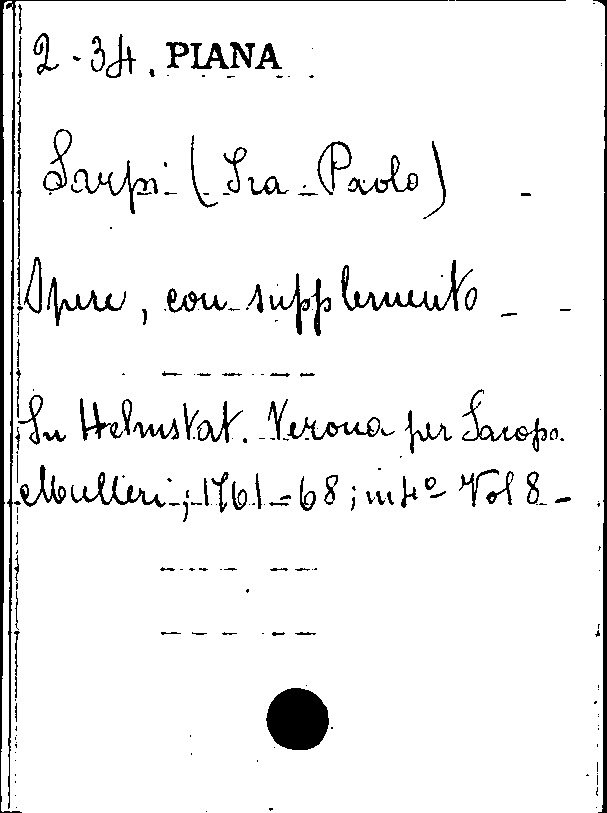 2-34. PIANA
Sarpi (Fra Paolo) -
Opere, con supplemento - -
In Helmstat. Verona per Jacopo
Mulleri; 1761-68; in 4º Vol 8 -